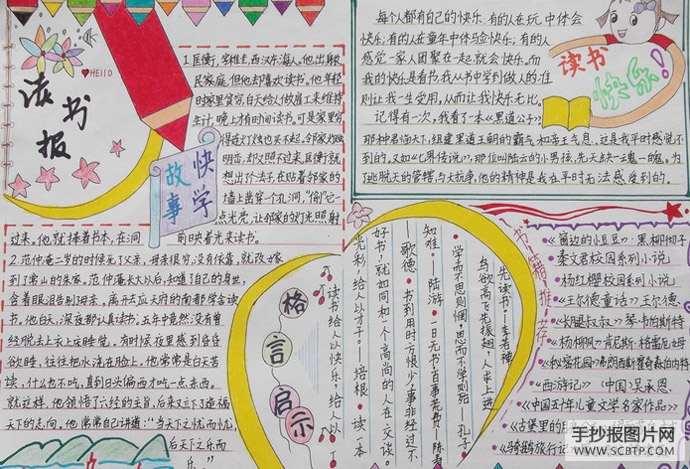 读书报
HELLO
快学
故事
1 匡衡,家住东,西汉东海人。他出身
民家庭,但他却喜欢读书。他年轻
时家里贫穷,白天给人做雇工来维持
生计,晚上有时间读书。可是家里穷
得连灯烛也买不起。邻家灯烛
明亮,却又照不过来,匡衡就
想出个法子,在贴着邻家的
墙上凿穿个孔洞,“偷”它一
点光亮,让邻家的灯光照射
过来。他就捧着书本,在洞
前映着光来读书。
2.范仲淹二岁的时候死了父亲,母亲很穷,没有依靠,就改嫁
到了常山的朱家。范仲淹长大以后,知道了自己的身世,
含着眼泪告别母亲,离开去应天府的南都学舍读
书。他白天,深夜都认真读书。五年中竟然没有曾
经脱去上衣上床睡觉。有时候夜里感到昏昏
欲睡,往往把水浇在脸上。他常常是白天苦
读,什么也不吃,直到日头偏西才吃一点东西。
就这样,他领悟了六经的主旨,后来又立下了造福
天下的志向,他常常自己讲道:“当天下之忧而忧,
后天下之乐而
乐。”
每个人都有自己的快乐:有的人在玩中体会
快乐;有的人在童年中体会快乐;有的人
感觉一家人团聚在一起就会快乐。而
我的快乐是看书,我从书中学到做人的准
则,让我一生受用,从而让我快乐无比。
记得有一次,我看了本《黑道公子》。
那种君临天下,组建黑道王朝的霸气和帝王气息,这是我平时感觉不
到的。又如《七界传说》,那位叫陆云的小男孩,先天缺一魂一魄。为
了逃脱天的管辖,与天抗争,他的精神是我在平时无法感受到的。
读书
快乐!
格言启示
·读书给人以快乐,给人以
光彩,给人以才干。—培根 ·读一本
好书,就如同和一个高尚的人在交谈
—歌德 ·书到用时方恨少,事非经过不
知难。—陆游 ·一日无书,百事荒芜—陈寿
·学而不思则惘,思而不学则殆—孔子
·鸟欲高飞先振翅,人求上进
先读书。—李若禅
书籍推荐
·《窗边的小豆豆》:黑柳彻子
·秦文君校园系列小说
·杨红樱校园系列小说
·《王尔德童话》王尔德
·《西游记》(中国)吴承恩
·《中国五十年儿童文学名家作品》
·《骑鹅旅行记
手抄报图片网
WWW.SCBTP.COM